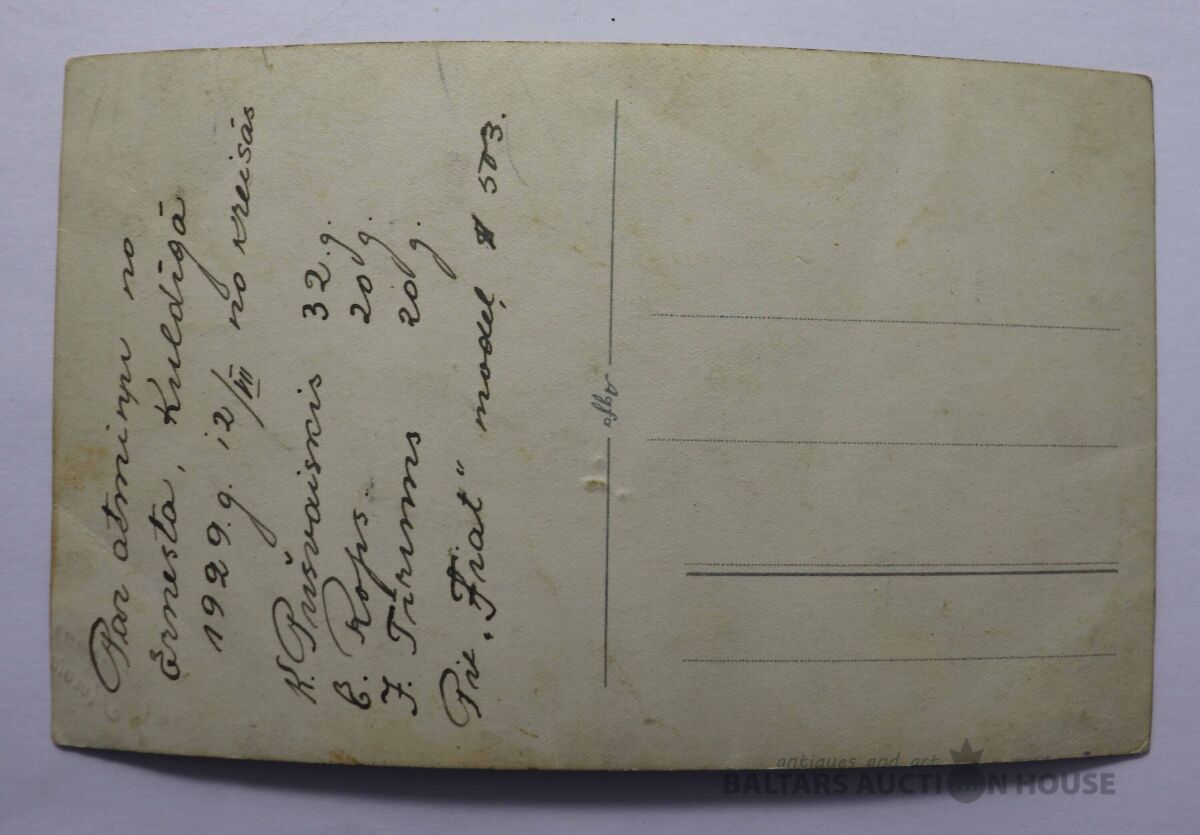 Par atmiņu no
Ernesta, Kuldīgā
1929.g. 12/VII no kreisās
K. Pūšvaiskis 32.g.
E. Rops 20 g.
J. Tīrums 20 g.
Pie „Fiat" model 503.
Agfa
antiques and art
BALTARS AUCTION HOUSE